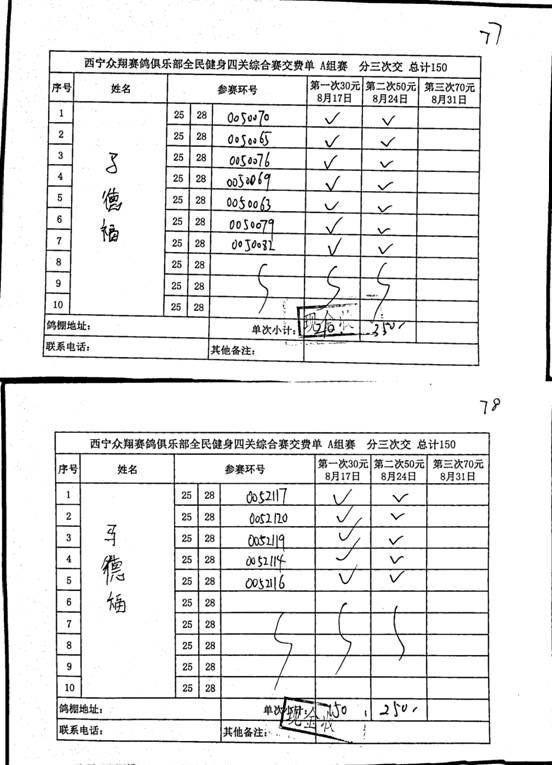 77
西宁众翔赛鸽俱乐部全民健身四关综合赛交费单 A组赛 分三次交 总计150
序号 姓名 参赛环号 第一次30元 8月17日 第二次50元 8月24日 第三次70元 8月31日
1 25 28 0050070 ✓ ✓
2 25 28 0050065 ✓ ✓
3 25 28 0050076 ✓ ✓
4 25 28 0050069 ✓ ✓
5 25 28 0050063 ✓ ✓
6 25 28 0050079 ✓ ✓
7 25 28 0050082 ✓ ✓
马德福
8 25 28
9 25 28
10 25 28
鸽棚地址: 单次小计: 210 350
现金收
联系电话: 其他备注:
78
西宁众翔赛鸽俱乐部全民健身四关综合赛交费单 A组赛 分三次交 总计150
序号 姓名 参赛环号 第一次30元 8月17日 第二次50元 8月24日 第三次70元 8月31日
1 25 28 0052117 ✓ ✓
2 25 28 0052120 ✓ ✓
3 25 28 0052119 ✓ ✓
4 25 28 0052114 ✓ ✓
5 25 28 0052116 ✓ ✓
马德福
6 25 28
7 25 28
8 25 28
9 25 28
10 25 28
鸽棚地址: 单次小计: 150 250
现金收
联系电话: 其他备注: